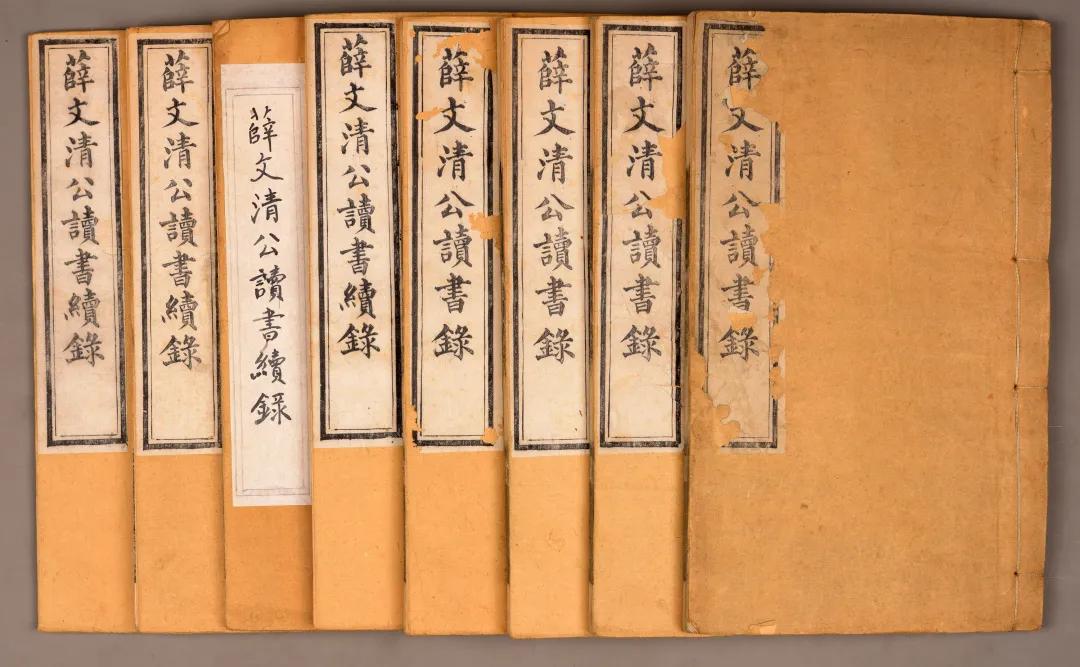 薛文清公讀書錄
薛文清公讀書錄
薛文清公讀書錄
薛文清公讀書錄
薛文清公讀書續錄
薛文清公讀書續錄
薛文清公讀書續錄
薛文清公讀書續錄